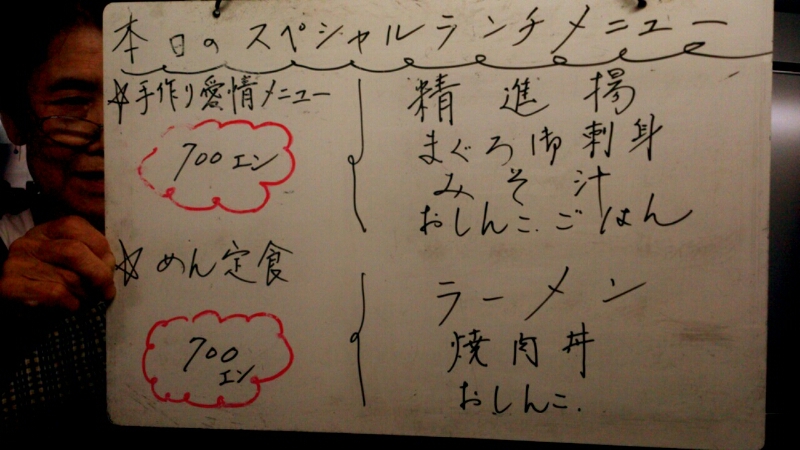 本日のスペシャルランチメニュー
☆手作り愛情メニュー
700エン
精進揚
まぐろ御刺身
みそ汁
おしんこ.ごはん
☆めん定食
700
エン
ラーメン
焼肉丼
おしんこ.